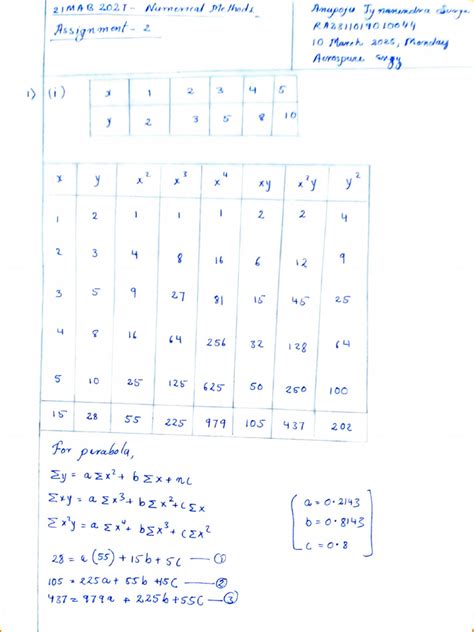 21MAB202T - Numerical Methods
Assignment - 2
RA2311019010044
10 March 2025, Monday
1) (i)
x 1 2 3 4 5
y 2 3 5 8 10
x y x² x³ x⁴ xy x²y y²
1 2 1 1 1 2 2 4
2 3 4 8 16 6 12 9
3 5 9 27 81 15 45 25
4 8 16 64 256 32 128 64
5 10 25 125 625 50 250 100
15 28 55 225 979 105 437 202
For parabola,
Σy = aΣx² + bΣx + nc
Σxy = aΣx³ + bΣx² + cΣx
Σx²y = aΣx⁴ + bΣx³ + cΣx²
a = 0.2143
b = 0.8143
c = 0.8
28 = a(55) + 15b + 5c — ①
105 = 225a + 55b + 15c — ②
437 = 979a + 225b + 55c — ③